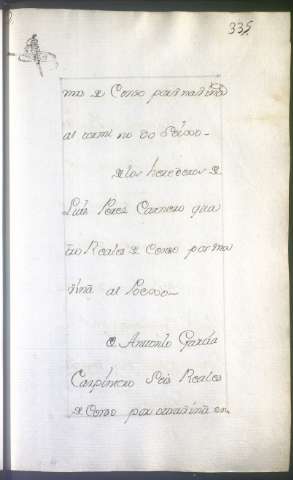 335
mas de Censo por una viña
al cami no do Seixo
de los herederos de
Luis Perez Carnero qua
tro Reales de Censo por una
viña al
Antonio Garcia
Carpintero Seis Reales
de Censo por una viña en